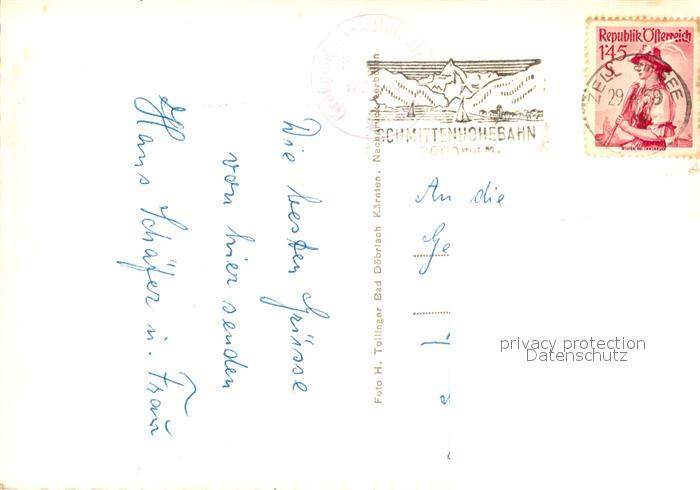 Die besten Grüsse
von hier senden
Hans Schäfer u. Frau
Foto H. Tollinger Bad Döbriach Kärnten. Nachdruck verboten
SCHMITTENHÖHEBAHN
2000 m ü.M.
Republik Österreich
1'45
S
ZELL SEE
29
An die
Ge
privacy protection
Datenschutz